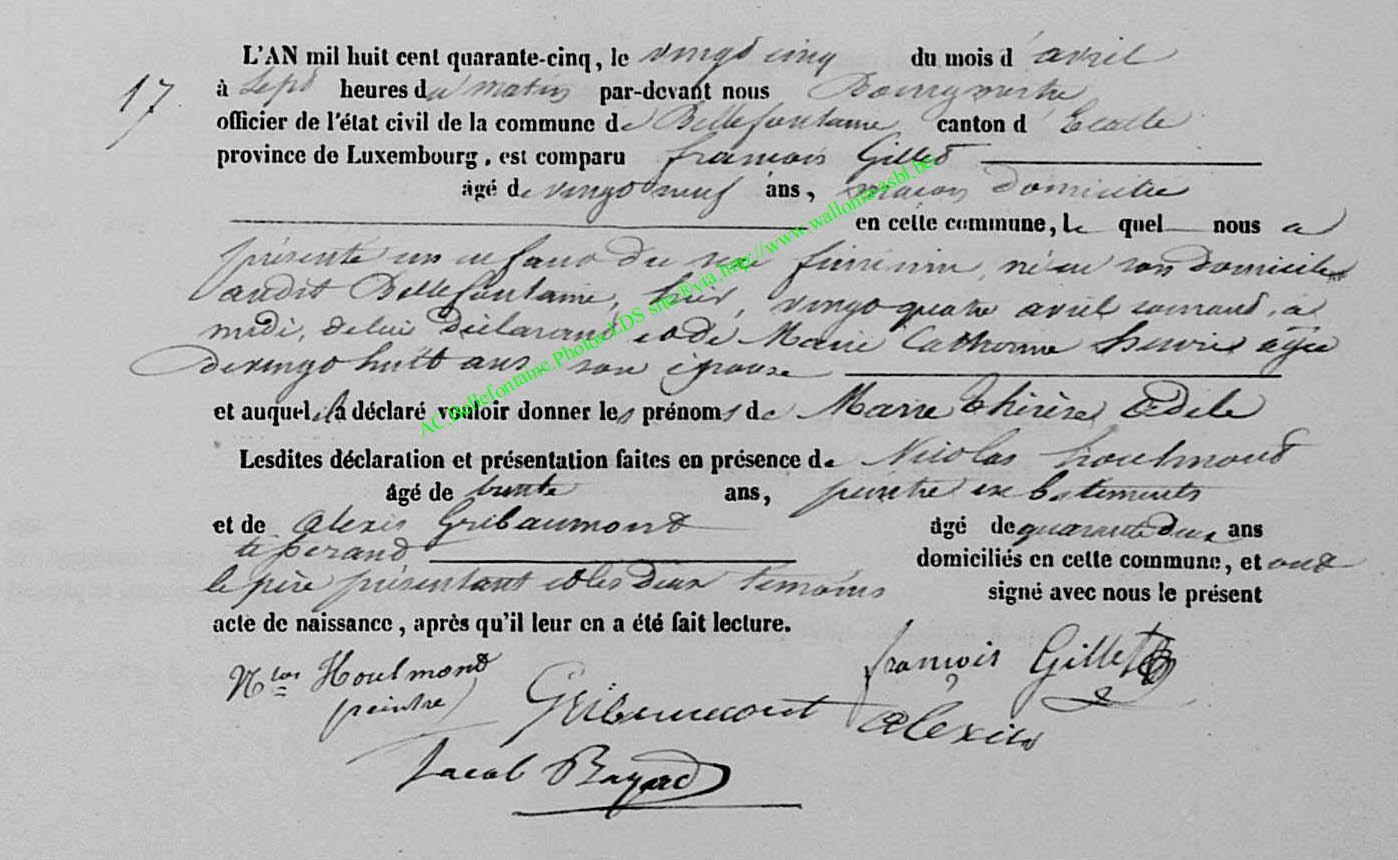 L'AN mil huit cent quarante-cinq, le vingt cinq du mois d'avril
17 à sept heures du matin par-devant nous Bourgmestre
officier de l'état civil de la commune de Bellefontaine canton d'Etalle
province de Luxembourg, est comparu françois Gillet
âgé de vingt neuf ans, maçon domicilié
en cette commune, le quel nous a
présenté un enfant du sexe féminin, né en son domicile
audit Bellefontaine, hier, vingt quatre avril courant, à
midi, de lui déclarant et de Marie Catherine henrion âgée
de vingt huit ans son épouse
et auquel il a déclaré vouloir donner les prénoms de Marie thérèse Adèle
Lesdites déclaration et présentation faites en présence de Nicolas houlmont
âgé de trente ans, peintre en batements
et de alexis Gribaumont âgé de quarante deux ans
tisserand domiciliés en cette commune, et ont
le père présentant et les deux témoins signé avec nous le présent
acte de naissance, après qu'il leur en a été fait lecture.
Nlas Houlmont françois Gillet
peintre Gribeumont alexis
Jacob Bayard
AC.Bellefontaine.Photos LDS site®via.http://www.wallonia-asbl.be